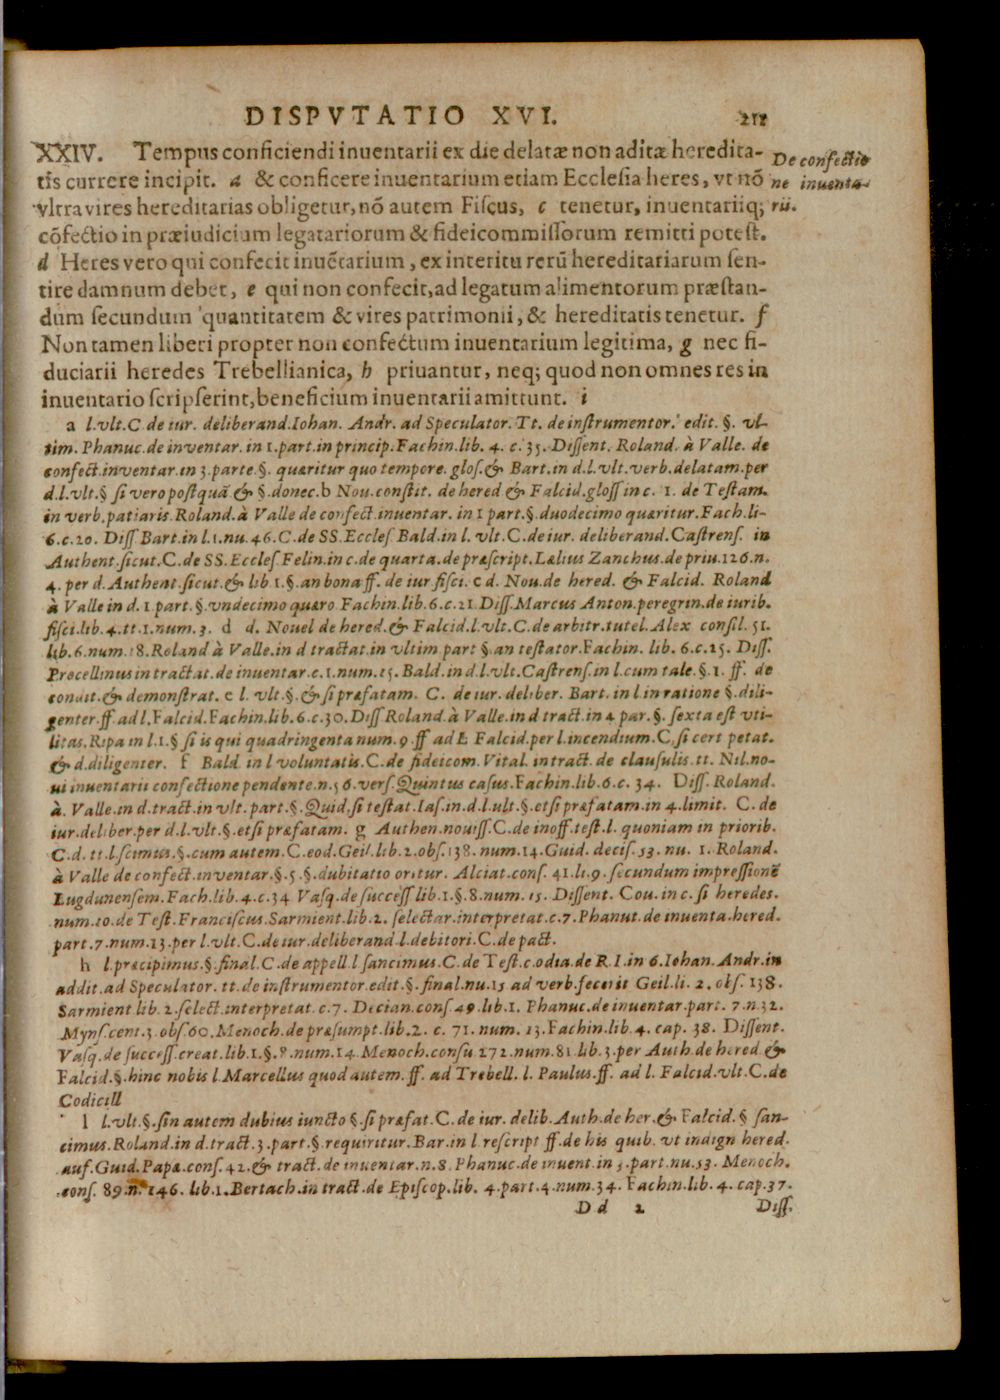 DISPVTATIO XVI. 211
XXIV. Tempus conficiendi inuentarii ex die delatæ non aditæ heredita-
tis currere incipit. a & conficere inuentarium etiam Ecclesia heres, vt nõ
vltra vires hereditarias obligetur, nõ autem Fiscus, c tenetur, inuentariiq;
cõfectio in præiudicium legatariorum & fideicommissorum remitti potest.
d Heres vero qui confecit inuẽtarium, ex interitu rerũ hereditariarum sen-
tire damnum debet, e qui non confecit, ad legatum alimentorum præstan-
dum secundum quantitatem & vires patrimonii, & hereditatis tenetur. f
Non tamen liberi propter non confectum inuentarium legitima, g nec fi-
duciarii heredes Trebellianica, h priuantur, neq; quod non omnes res in
inuentario scripserint, beneficium inuentarii amittunt. i
De confectio
ne inuenta-
rii.
a l.vlt.C de iur. deliberand.Iohan. Andr. ad Speculator. Tt. de instrumentor. edit. §. vl-
tim. Phanuc.de inuentar. in 1.part.in princip.Fachin.lib. 4. c. 35. Dissent. Roland. à Valle. de
confect.inventar.in 3.parte.§. quæritur quo tempore. glos.& Bart.in d.l.vlt.verb.delatam.per
d.l.vlt.§ si vero postquã & §.donec.b Nou.constit. de hered & Falcid.gloss in c. 1. de Testam.
in verb.patiaris.Roland.à Valle de confect.inuentar. in 1 part.§.duodecimo quæritur.Fach.li-
6.c.20. Diss Bart.in l.1.nu.46.C.de SS.Eccles Bald.in l. vlt.C.de iur. deliberand.Castrens. in
Authent.sicut.C.de SS.Eccles Felin.in c.de quarta.de præscript.Lælius Zanchus.de priu.126.n.
4. per d.Authent.sicut.& lib 1.§.an bona ff. de iur fisci. c d. Nou.de hered. & Falcid. Roland
à Valle in d.1.part.§.vndecimo quæro Fachin.lib.6.c.21.Diss.Marcus Anton.peregrin.de iurib.
fisci.lib.4.tt.1.num.3. d d. Nouel de hered.& Falcid.l.vlt.C.de arbitr.tutel.Alex consil.51.
lib.6.num.18.Roland à Valle.in d tractat.in vltim.part §.an testator.Fachin. lib. 6.c.25. Diss.
Porcellinus in tractat.de inuentar.c.1.num.15. Bald.in d.l.vlt.Castrens.in l.cum tale §.1. ff. de
condit.& demonstrat. e l. vlt.§.& si præfatam. C. de iur.deliber. Bart.in l in ratione §.dili-
genter.ff ad l.Falcid.Fachin.lib.6.c.30.Diss Roland.à Valle.in d tract.in 4 par.§. sexta est vti-
litas.Ripa in l.1.§ si is qui quadringenta num.9.ff ad L Falcid.per l.incendium.C.si cert petat.
& d.diligenter. f Bald. in l voluntatis.C.de fideicom.Vital. in tract.de clausulis.tt. Nil.no-
ui inuentarii confectione pendente.n.36.vers.Quintus casus.Fachin.lib.6.c. 34. Diss. Roland.
à. Valle.in d.tract.in vlt. part.§.Quid.si testat.Ias.in.d.l.ult.§.etsi præfatam.in 4.limit. C.de
iur.deliber.per d.l.vlt.§.etsi præfatam. g Authen.nouiss.C.de inoff.test.l. quoniam in priorib.
C.d. tt.l.scimus.§.cum autem.C.eod.Geil.lib.2.obs.138. num.14.Guid. decis.53.nu. 1.Roland.
à Valle de confect.inventar.§.5.§.dubitatio oritur. Alciat.cons.41.li.9.secundum impressionẽ
Lugdunensem.Fach.lib.4.c.34 Vasq.de success lib.1.§.8.num.15. Dissent. Cou.in c.si heredes.
num.10.de Test.Franciscus.Sarmient.lib.2. selectar.interpretat.c.7.Phanut.de inuenta.hered.
part.7.num.13.per l.vlt.C.de iur.deliberand.l.debitori.C.de pact.
h l.præcipimus.§.final.C.de appell.l sancimus.C.de Test.c.odia.de R.I.in 6.Iohan.Andr.in
addit.ad Speculator. tt.de instrumentor.edit.§.final.nu.15 ad verb.fecerit Geil.li. 2. obs. 138.
Sarmient lib. 2.select.interpretat.c.7. Decian.cons.49.lib.1. Phanuc.de inuentar.part. 7.n.32.
Myns.cent.3.obs.60.Menoch.de præsumpt.lib.2. c. 71.num. 13.Fachin.lib.4. cap. 38. Dissent.
Vasq.de success.creat.lib.1.§.8.num.14.Menoch.consu.272.num.81.lib.3.per Auth.de hered &
Falcid.§.hinc nobis l Marcellus quod autem.ff. ad Trebell. l. Paulus.ff. ad l. Falcid.vlt.C.de
Codicill
l l.vlt.§.sin autem dubius iuncto §.si præfat.C.de iur. delib.Auth.de her.& Falcid.§ san-
cimus.Roland.in d.tract.3.part.§.requiritur.Bar.in l rescript ff.de his quib. vt indign hered.
auf.Guid.Papæ.cons.42.& tract.de inuentar.n.8.Phanuc.de inuent.in 3.part.nu.53. Menoch.
cons. 89.n. 146. lib.1.Bertach.in tract.de Episcop.lib. 4.part.4.num.34. Fachin.lib.4. cap.37.
D d 2 Diss.